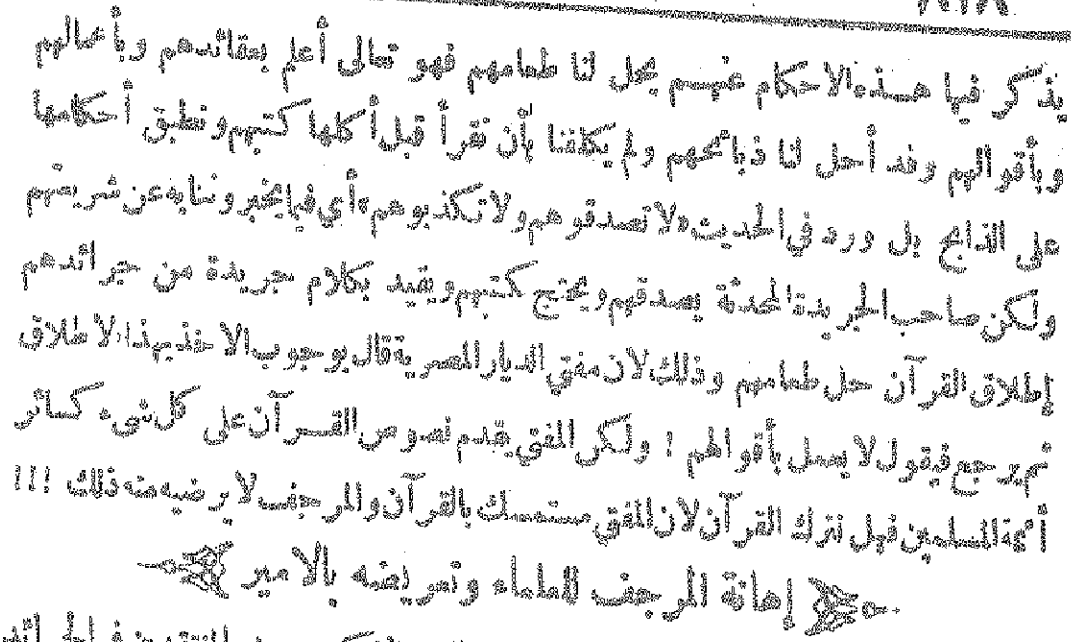 ٨١٨
يذكر فيها هذه الاحكام عنهم يحل لنا طعامهم فهو تعالى أعلم بعقائدهم وبأعمالهم
وبأقوالهم وقد أحل لنا ذبائحهم ولم يكلفنا بأن نقرأ قبل أكلها كتبهم ونطبق أحكامها
على الذابح بل ورد في الحديث «لا تصدقوهم ولا تكذبوهم» أي فيما يخبروننا به عن شريعتهم
ولكن صاحب الجريدة المحدثة يصدقهم ويحتج بكتبهم ويقيد بكلام جريدة من جرائدهم
إطلاق القرآن حل طعامهم وذلك لان مفتي الديار المصرية قال بوجوب الاخذ بهذا الاطلاق
ثم يرجع فيقول لا يعمل بأقوالهم ! ولكن المفتي يقدم نصوص القرآن على كل شيء كسائر
أئمة المسلمين فهل نترك القرآن لان المفتي مستمسك بالقرآن والمرجف لا يرضيه منه ذلك !!!
إهانة المرجف للعلماء وتعريضه بالامير